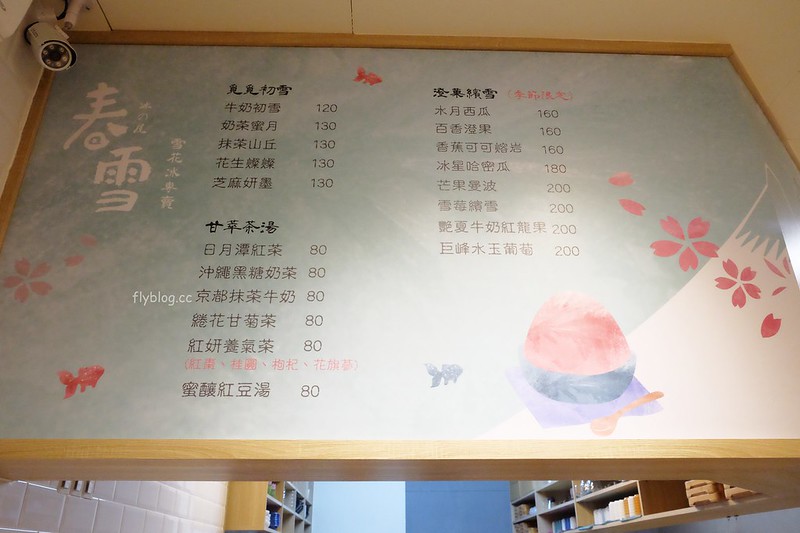 春雪
冰の風
雪花冰專賣
覓覓初雪
牛奶初雪 120
奶茶蜜月 130
抹茶山丘 130
花生蝶蝶 130
芝麻妍墨 130
甘萃茶湯
日月潭紅茶 80
沖繩黑糖奶茶 80
京都抹茶牛奶 80
綣花甘菊茶 80
紅妍養氣茶 80
(紅棗、桂圓、枸杞、花旗蔘)
蜜釀紅豆湯 80
澄菓繽雪 (季節限定)
水月西瓜 160
百香澄果 160
香蕉可可鎔岩 160
冰星哈密瓜 180
芒果曼波 200
雪莓繽雪 200
艷夏牛奶紅龍果 200
巨峰水玉葡萄 200
flyblog.cc